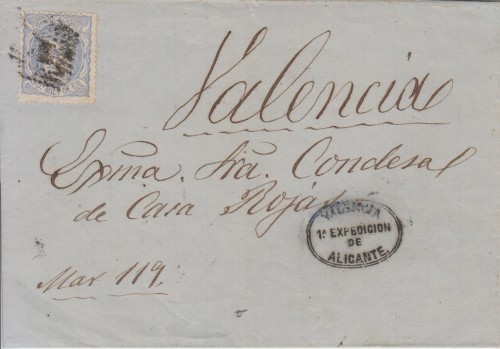 Valencia
Exma. Sra. Condesa
de Casa Rojas
Mar 119.
VALENCIA
1ª EXPEDICION
DE
ALICANTE.